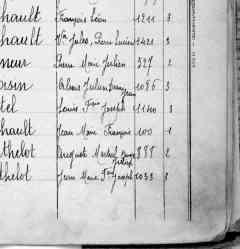 hault François Léon 1211 3
hault Jules, Pierre Lucien 1421
neur Pierre Marie Julien 327 2
oisin Julien Jean 1086 3
tel Louis, Joseph 1140 3
hault Jean Marie François 100 1
thelot Auguste 888 2
thelot Jean Marie Joseph 1033 3